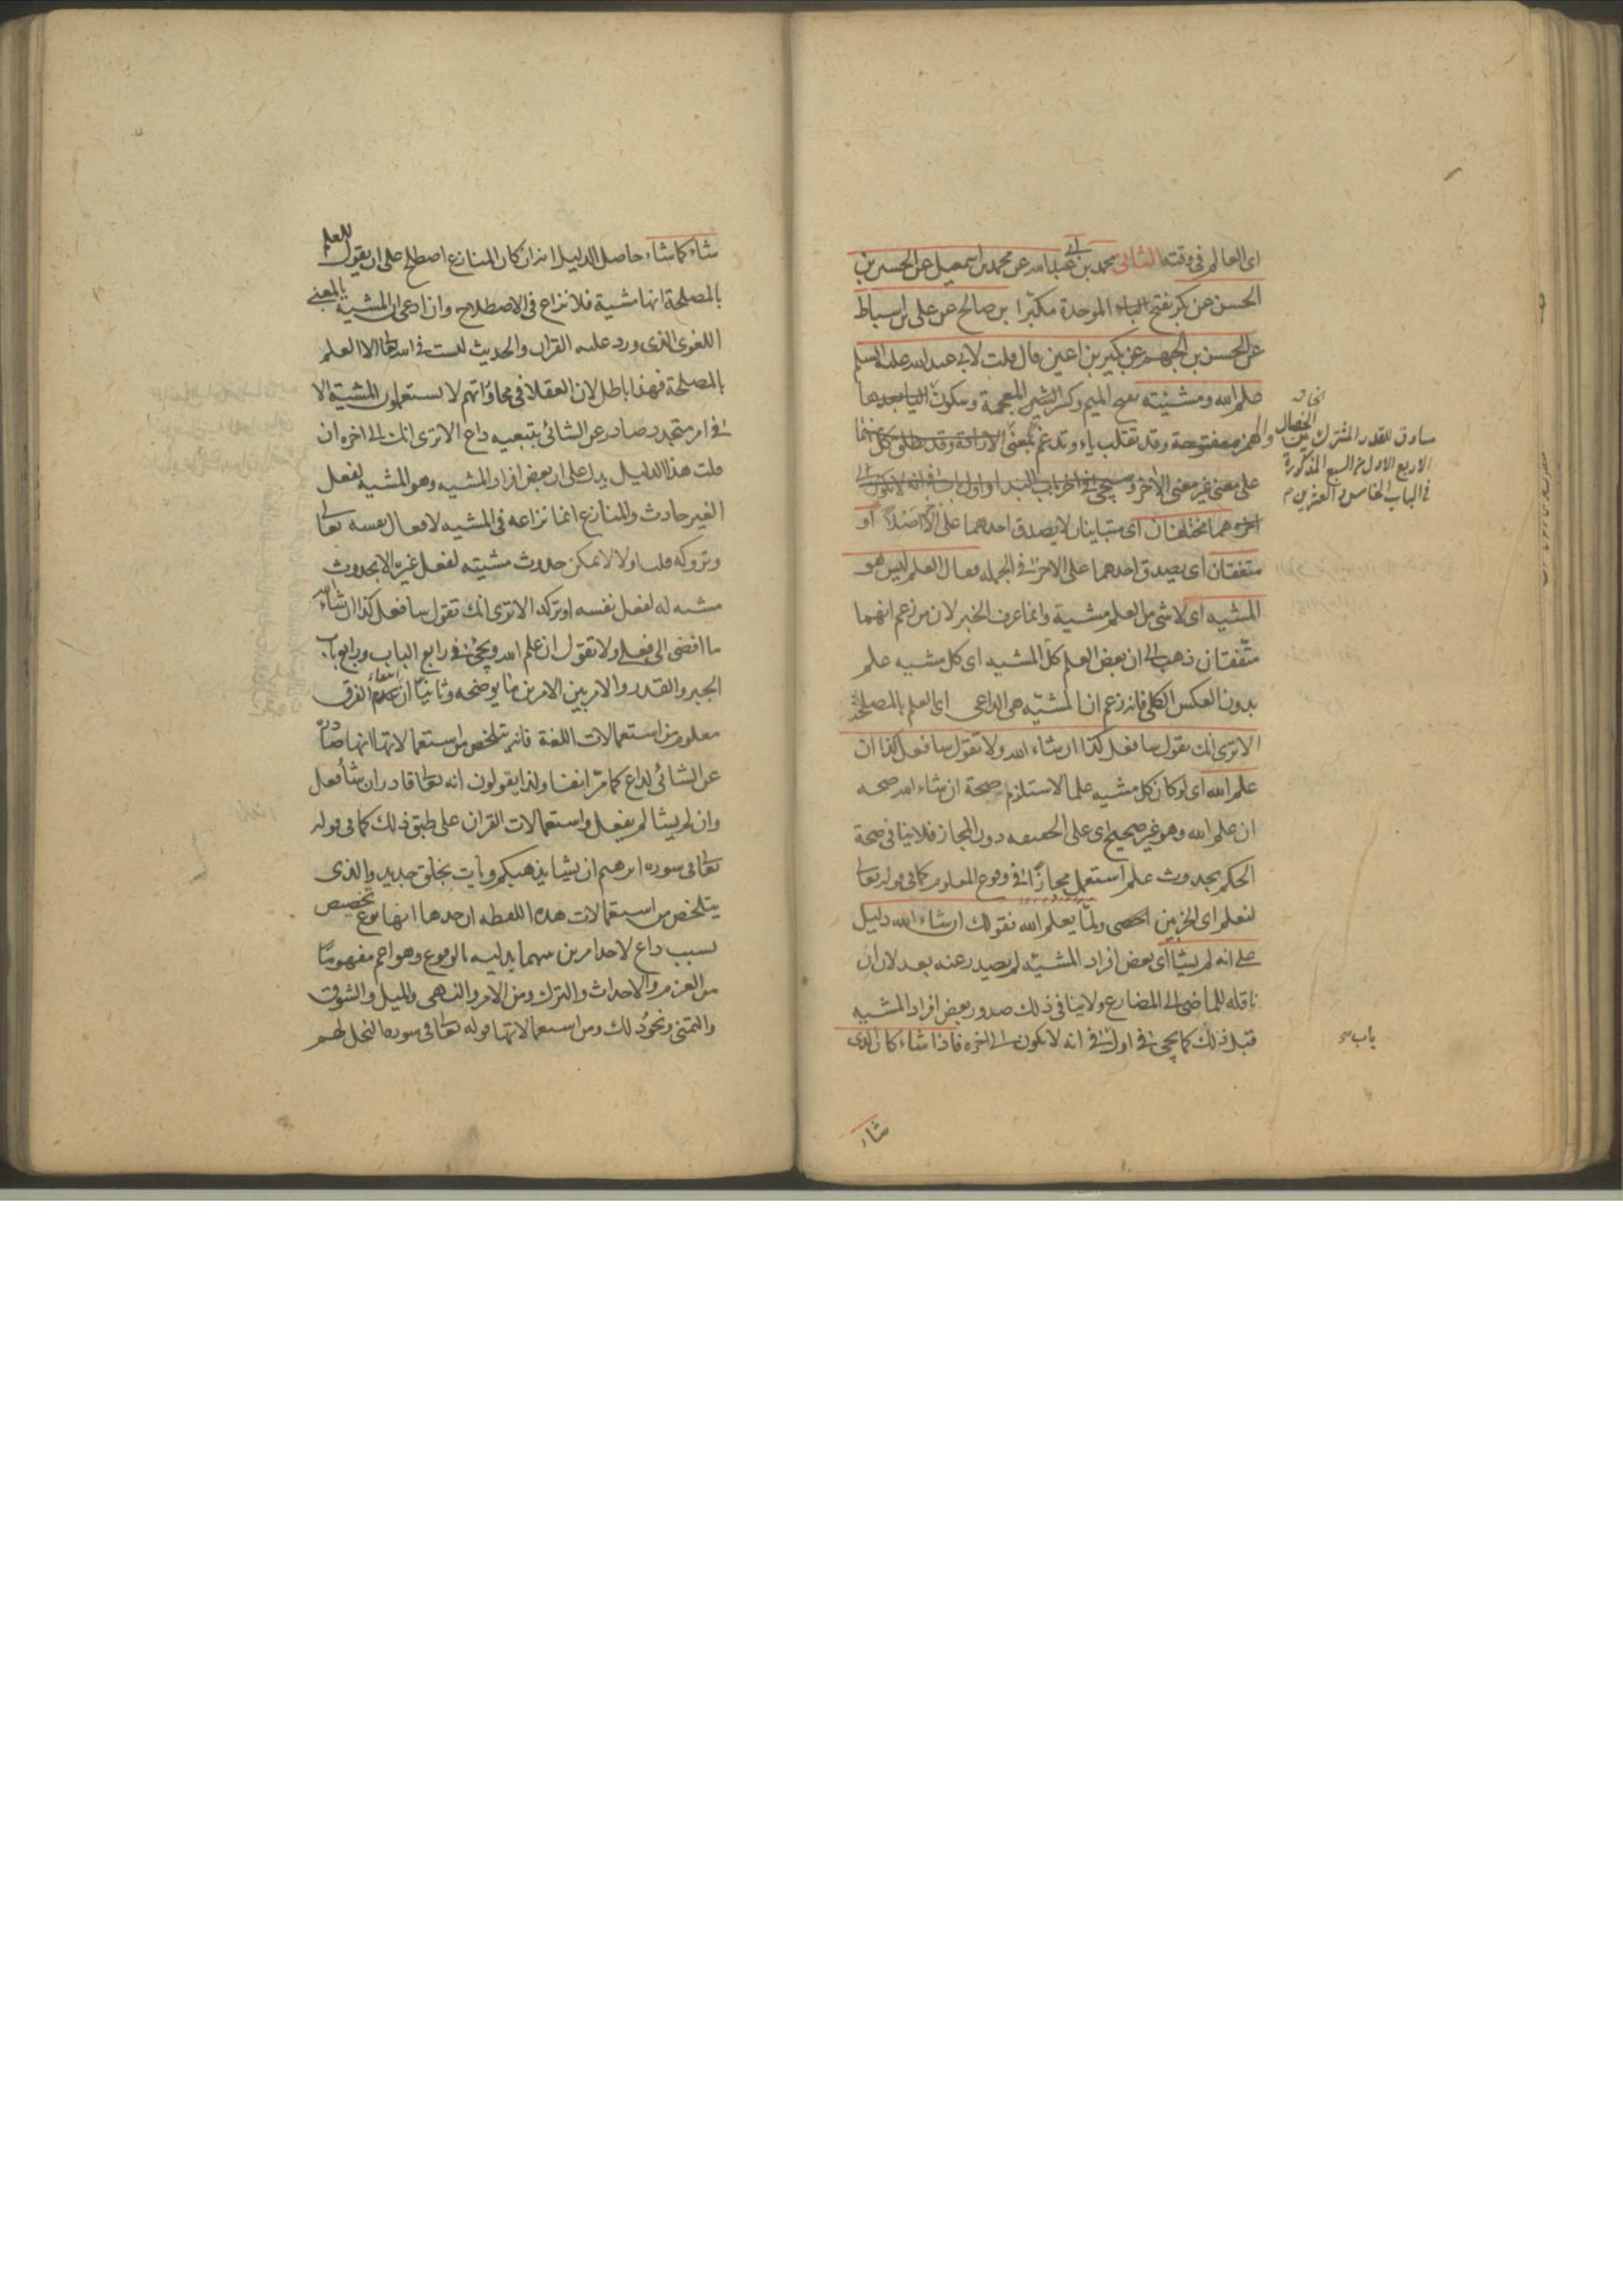 اى العالم فى وقته الثانى محمد بن ابى عبد الله عن محمد بن اسمعيل عن الحسين بن
الحسن عن بكر بفتح الباء الموحدة مكبّرا بن صالح عن على بن اسباط
عن الحسن بن الجهم عن بكير بن اعين قال قلت لابى عبد الله عليه السلم
علم الله ومشيّته بفتح الميم وكسر الشين المعجمة وسكون الياء بعدها
والهمز مفتوحة وقد تقلب ياء وتدغم بمعنى الارادة وقد يطلق كل منهما
على معنى غير معنى الآخر وسيجئ فى اخر باب البداء واول باب فى انه لا يكون الى
اخره هما مختلفان اى متباينان لا يصدق احدهما على الآخر اصلاً او
متفقتان اى يصدق احدهما على الاخر فى الجمله فقال العلم ليس هو
المشيه اى لا شئ من العلم مشية وانما عرف الخبر لان من زعم انهما
متّفقتان ذهب الى ان بعض العلم كلّ المشيه اى كل مشيه علم
بدون العكس الكلى فانه زعم ان المشيّه هى الداعى اى العلم بالمصلحة
الا ترى انك تقول سافعل كذا ان شاء الله ولا تقول سافعل كذا ان
علم الله اى لو كان كل مشيه علما لاستلزم صحة ان شاء الله صحه
ان علم الله وهو غير صحيح اى على الحقيقه دون المجاز فلا ينافى صحة
الحكم بحدوث علم استعمل مجازًا فى وقوع المعلوم كما فى قوله تعالى
لنعلم اى الحزبين احصى ولمّا يعلم الله فقولك ان شاء الله دليل
على انه لم يشا اى بعض افراد المشيّه لم يصدر عنه بعد لان ان
ناقله للماضى الى المضارع ولا ينافى ذلك صدور بعض افراد المشيه
قبل ذلك كما يجئ فى اول فى انه لا يكون الى اخره فاذا شاء كان الذى
شاء
الخصال
ساوق للقدر المشترك بين
الاربع الاول من السبع المذكورة
فى الباب الخامس والعشرين م
باب
شاء كما شاء حاصل الدليل انه ان كان المنازع اصطلح على ان يقول للعلم
بالمصلحة انها مشية فلا نزاع فى الاصطلاح وان ادعى ان المشية بالمعنى
اللغوى الذى ورد عليه القرآن والحديث ليست فى الله تعالى الا العلم
بالمصلحة فهذا باطل لان العقلا فى محاوراتهم لا يستعملون المشية الا
فى امر متجدد صادر عن الشائى بتبعيه داع الا ترى انك الى اخره ان
قلت هذا الدليل يدل على ان بعض افراد المشيه وهو المشيه لفعل
الغير حادث والمنازع انما نزاعه فى المشيه لافعال نفسه تعالى
وتروكه قلت اولا لا يمكن حدوث مشيّته لفعل غيره الا بحدوث
مشيه له لفعل نفسه او تركه الا ترى انك تقول سافعل كذا ان شاء الله
ما افضى الى فعلى ولا تقول ان علم الله ويجئ فى رابع الباب ورابع باب
الجبر والقدر والامر بين الامرين ما يوضحه وثانيًا ان انتفاء الفرق
معلوم من استعمالات اللغة فانه يتلخص من استعمالاتها انها صادرة
عن الشائى لداع كما مرّ انفا ولذا يقولون انه تعالى قادر ان شا فعل
وان لم يشا لم يفعل واستعمالات القرآن على طبق ذلك كما فى قوله
تعالى فى سوره ابرهيم ان يشا يذهبكم ويات بخلق جديد والذى
يتلخص من استعمالات هذه اللفظه ان حدها انها نوع تخصيص
بسبب داع لاحد امرين منهما بدليه بالوقوع وهو اعم مفهوما
من العزم والاحداث والترك ومن الامر والنهى والميل والشوق
والتمنى ونحو ذلك ومن استعمالاتها قوله تعالى فى سوره النحل لهم